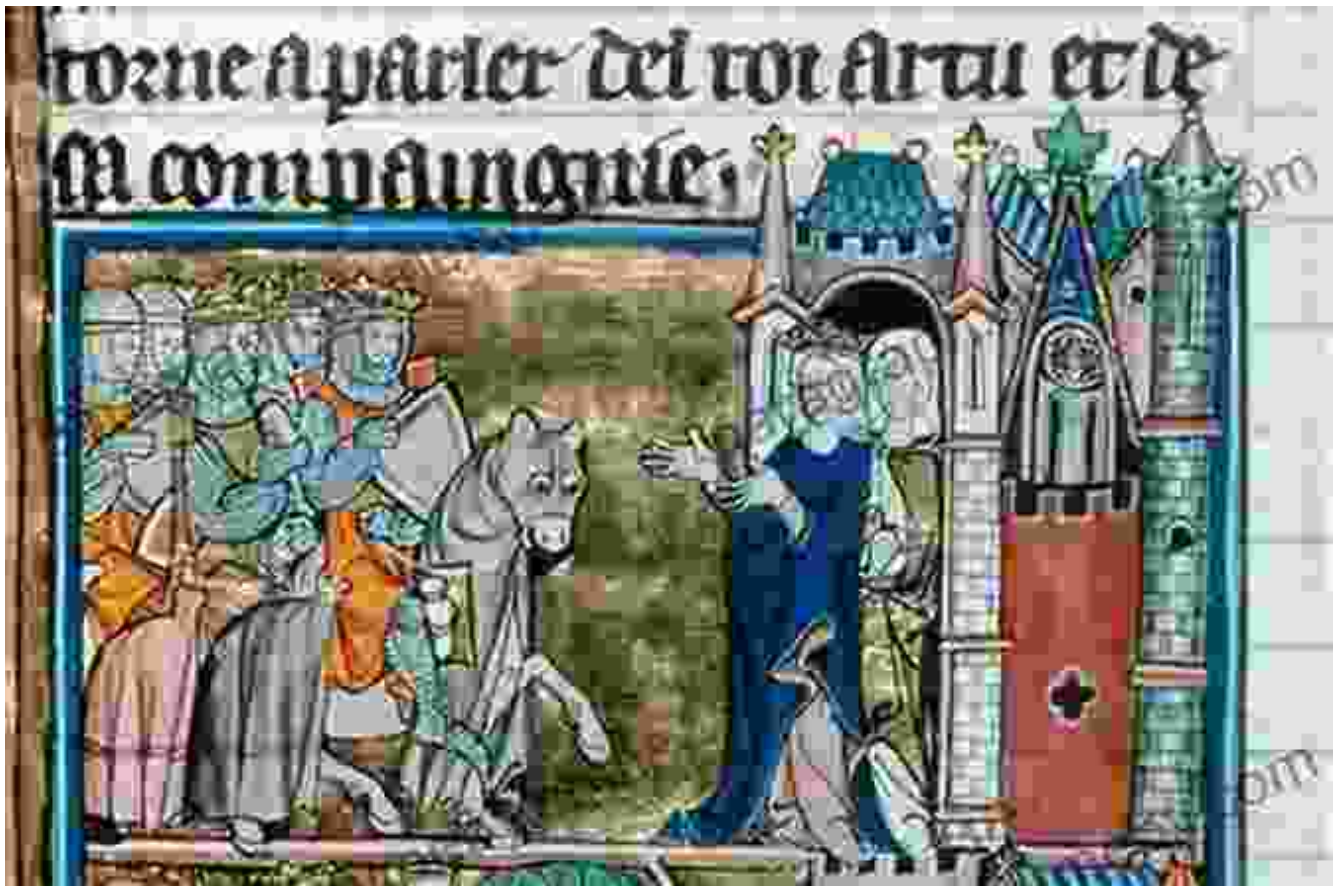 torne a parler del roi artu et de
sa compaingnie.
om
om